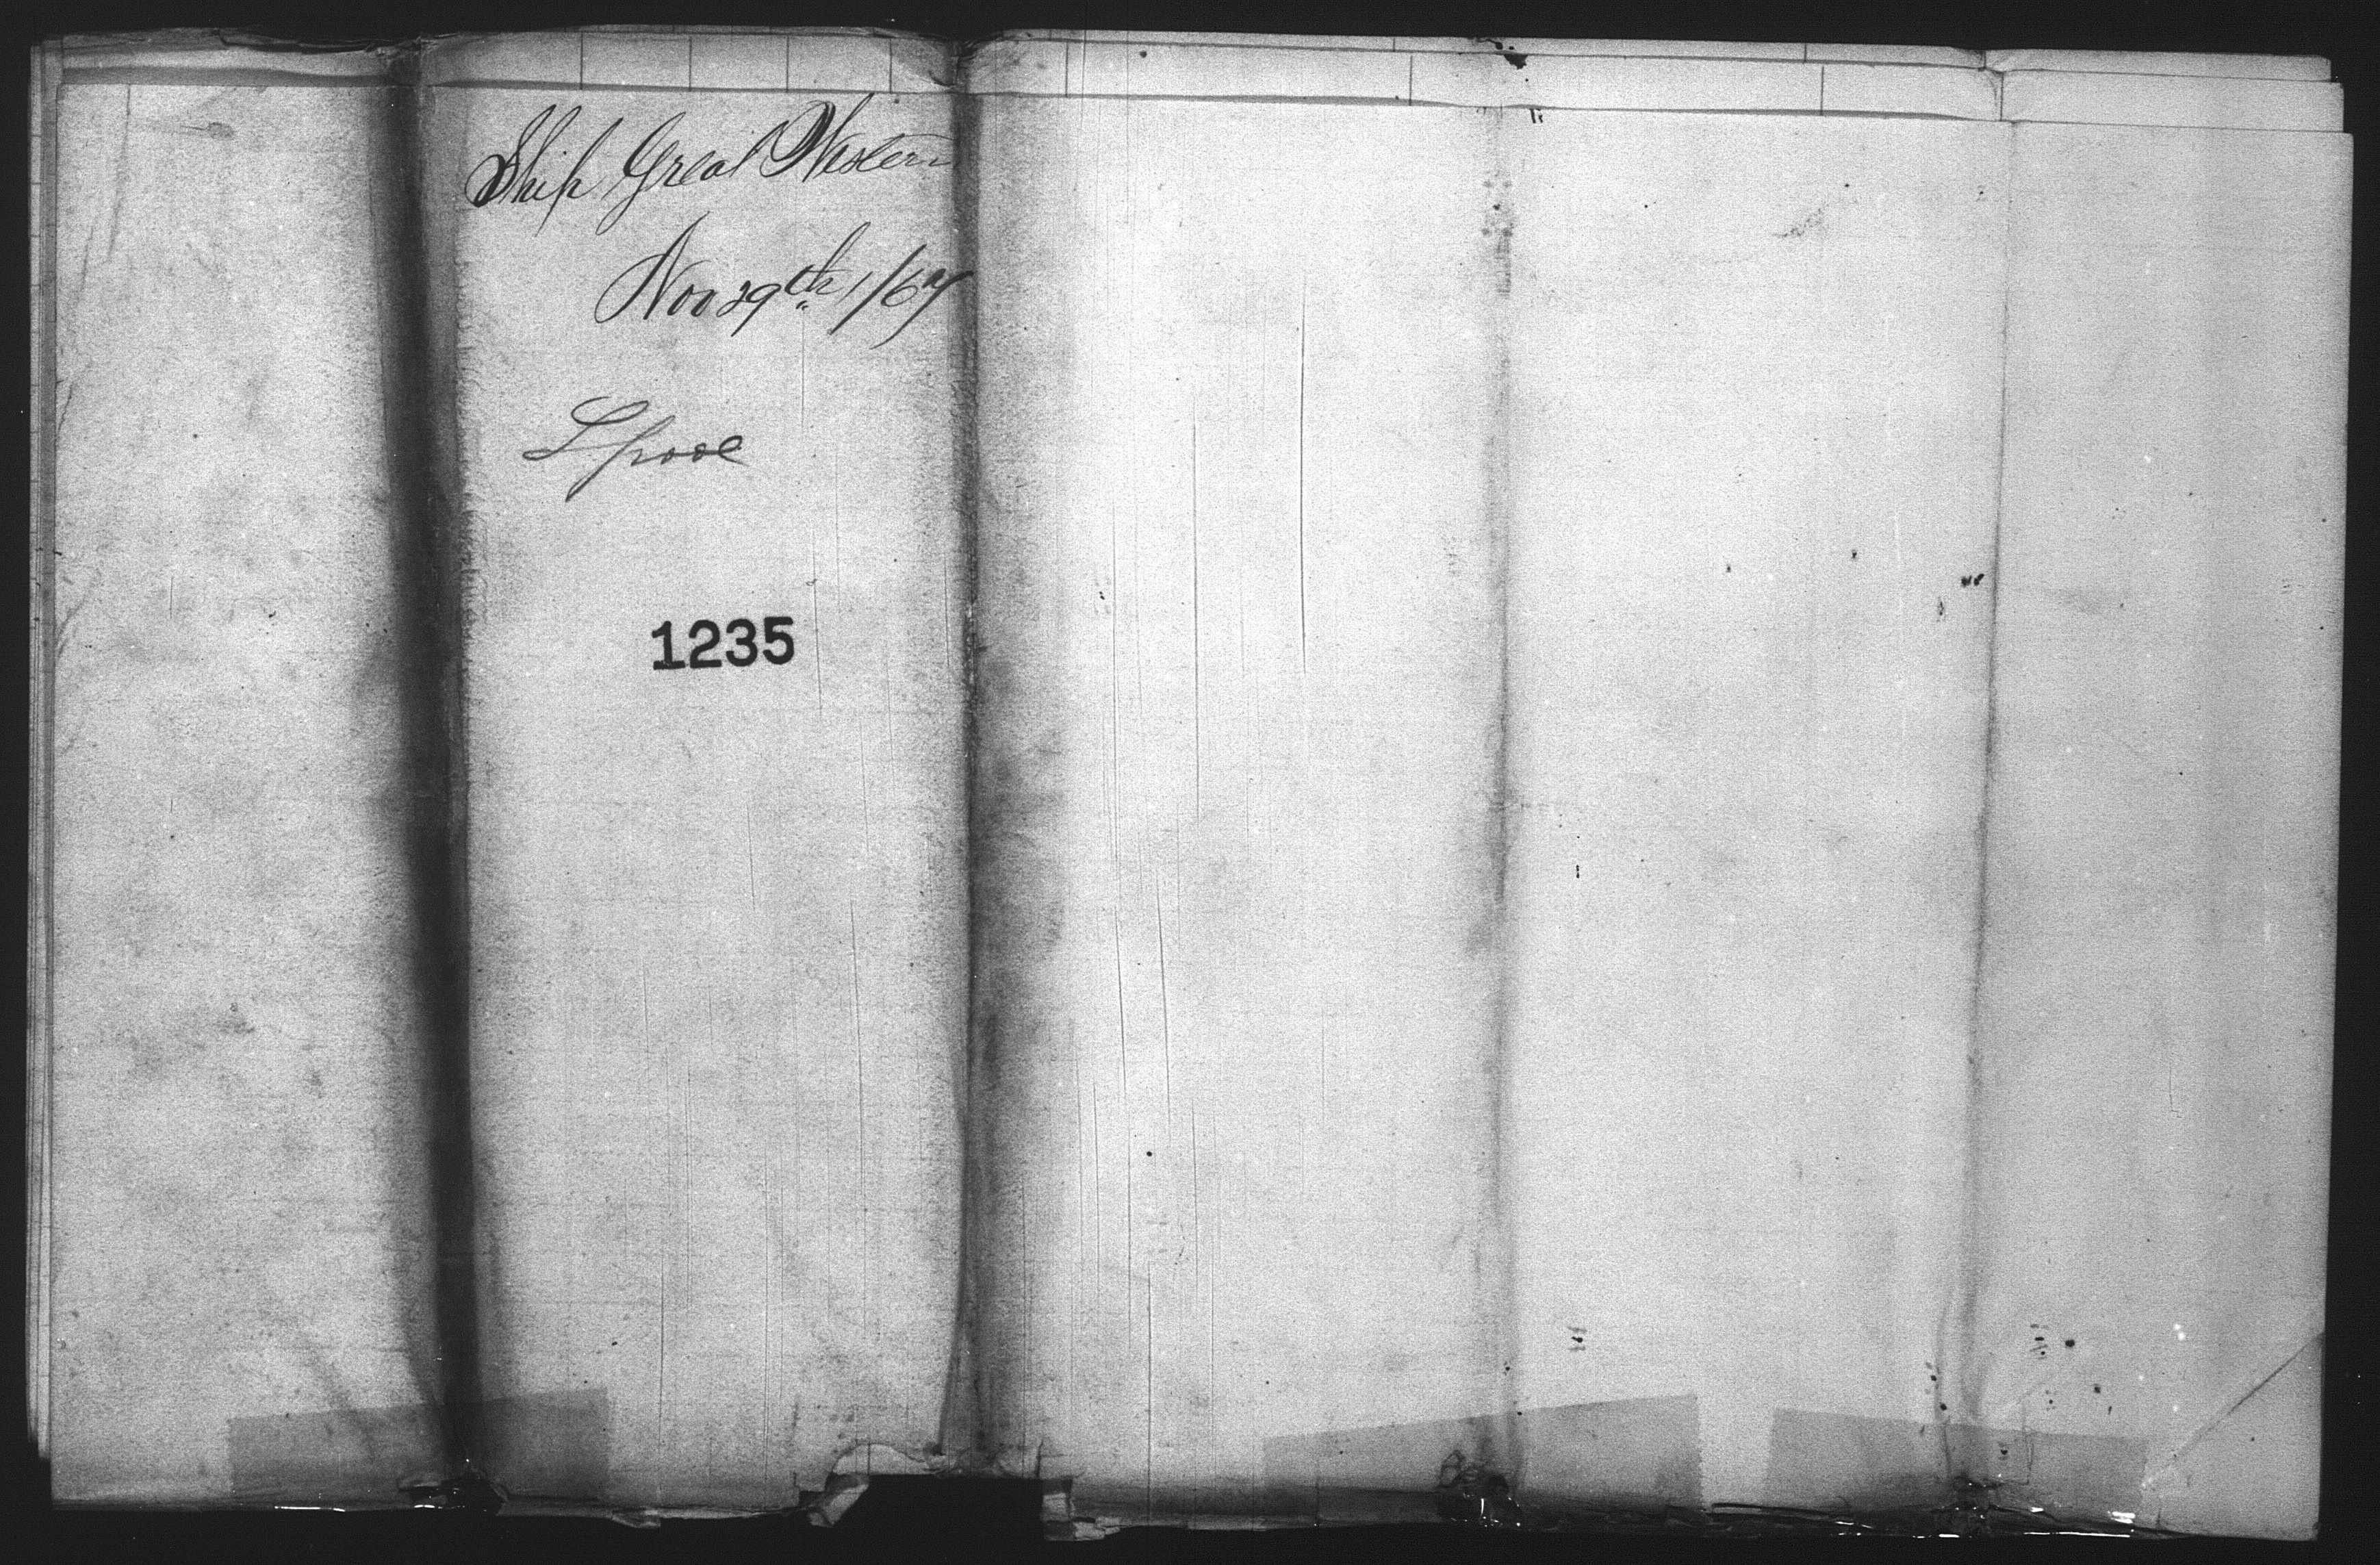 Ship Great Western
Nov 29th / 67
Lpool
1235